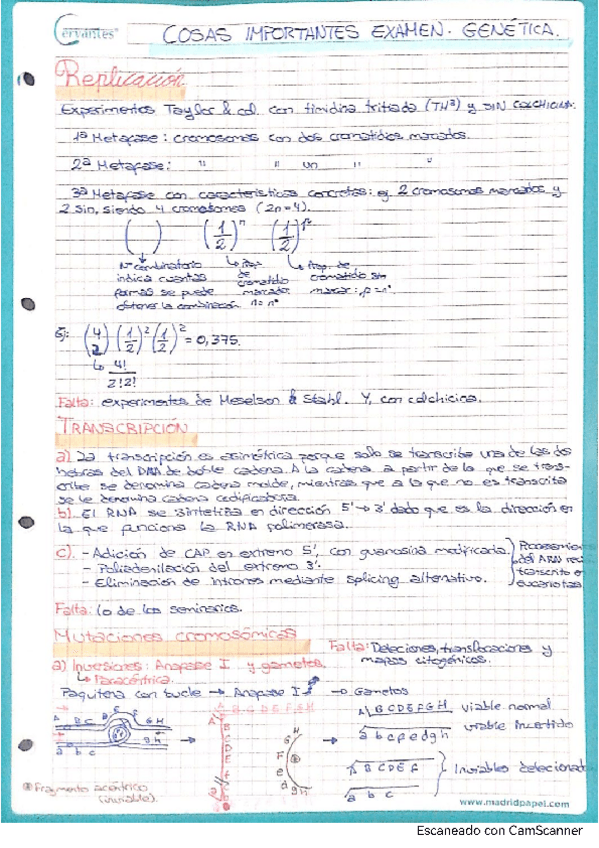 Cervantes
COSAS IMPORTANTES EXAMEN. GENÉTICA.
Replicación
Experimentos Taylor & col. con timidina tritiada (TH³) y SIN COLCHICINA.
1ª Metafase: cromosomas con dos cromatidios marcados.
2ª Metafase: " " un " "
3ª Metafase con características concretas: ej. 2 cromosomas marcados y
2 sin, siendo 4 cromosomas (2n=4).
( ) (1/2)ⁿ (1/2)
Nº combinatorio
indica cuantas
formas se puede
obtener la combinación
de
cromatidio
marcado:
n = nº
Prop. de
cromatidio sin
marcar: p = nº.
Ej: (4 2) (1/2)² (1/2)² = 0,375.
4!
2!2!
Falta: experimentos de Meselson & Stahl. Y, con colchicina.
TRANSCRIPCIÓN
a) La transcripción es asimétrica porque solo se transcribe una de las dos
hebras del DNA de doble cadena. A la cadena a partir de la que se trans-
cribe se denomina cadena molde, mientras que a la que no es transcrita
se le denomina cadena codificadora.
b). El RNA se sintetiza en dirección 5'→3' dado que es la dirección en
la que funciona la RNA polimerasa.
c). - Adición de CAP en extremo 5', con guanosina modificada.
- Poliadenilación del extremo 3'.
- Eliminación de intrones mediante splicing alternativo.
Procesamien
del ARN reci
transcrito e
eucariotas
Falta: lo de los seminarios.
Mutaciones cromosómicas
Falta: Deleciones, translocaciones y
mapas citogénicos.
a) Inversiones: Anafase I y gametos.
Paracéntrica.
Paquitena con bucle → Anafase I → Gametos
A B C D E F G H
A B C D E F G H viable normal
a b c f e d g h viable invertido
A B C D E A
a b c
Inviables delecionad
A B C G H
a b c g h
Fragmento acéntrico
(inviable).
www.madridpapel.com
Escaneado con CamScanner